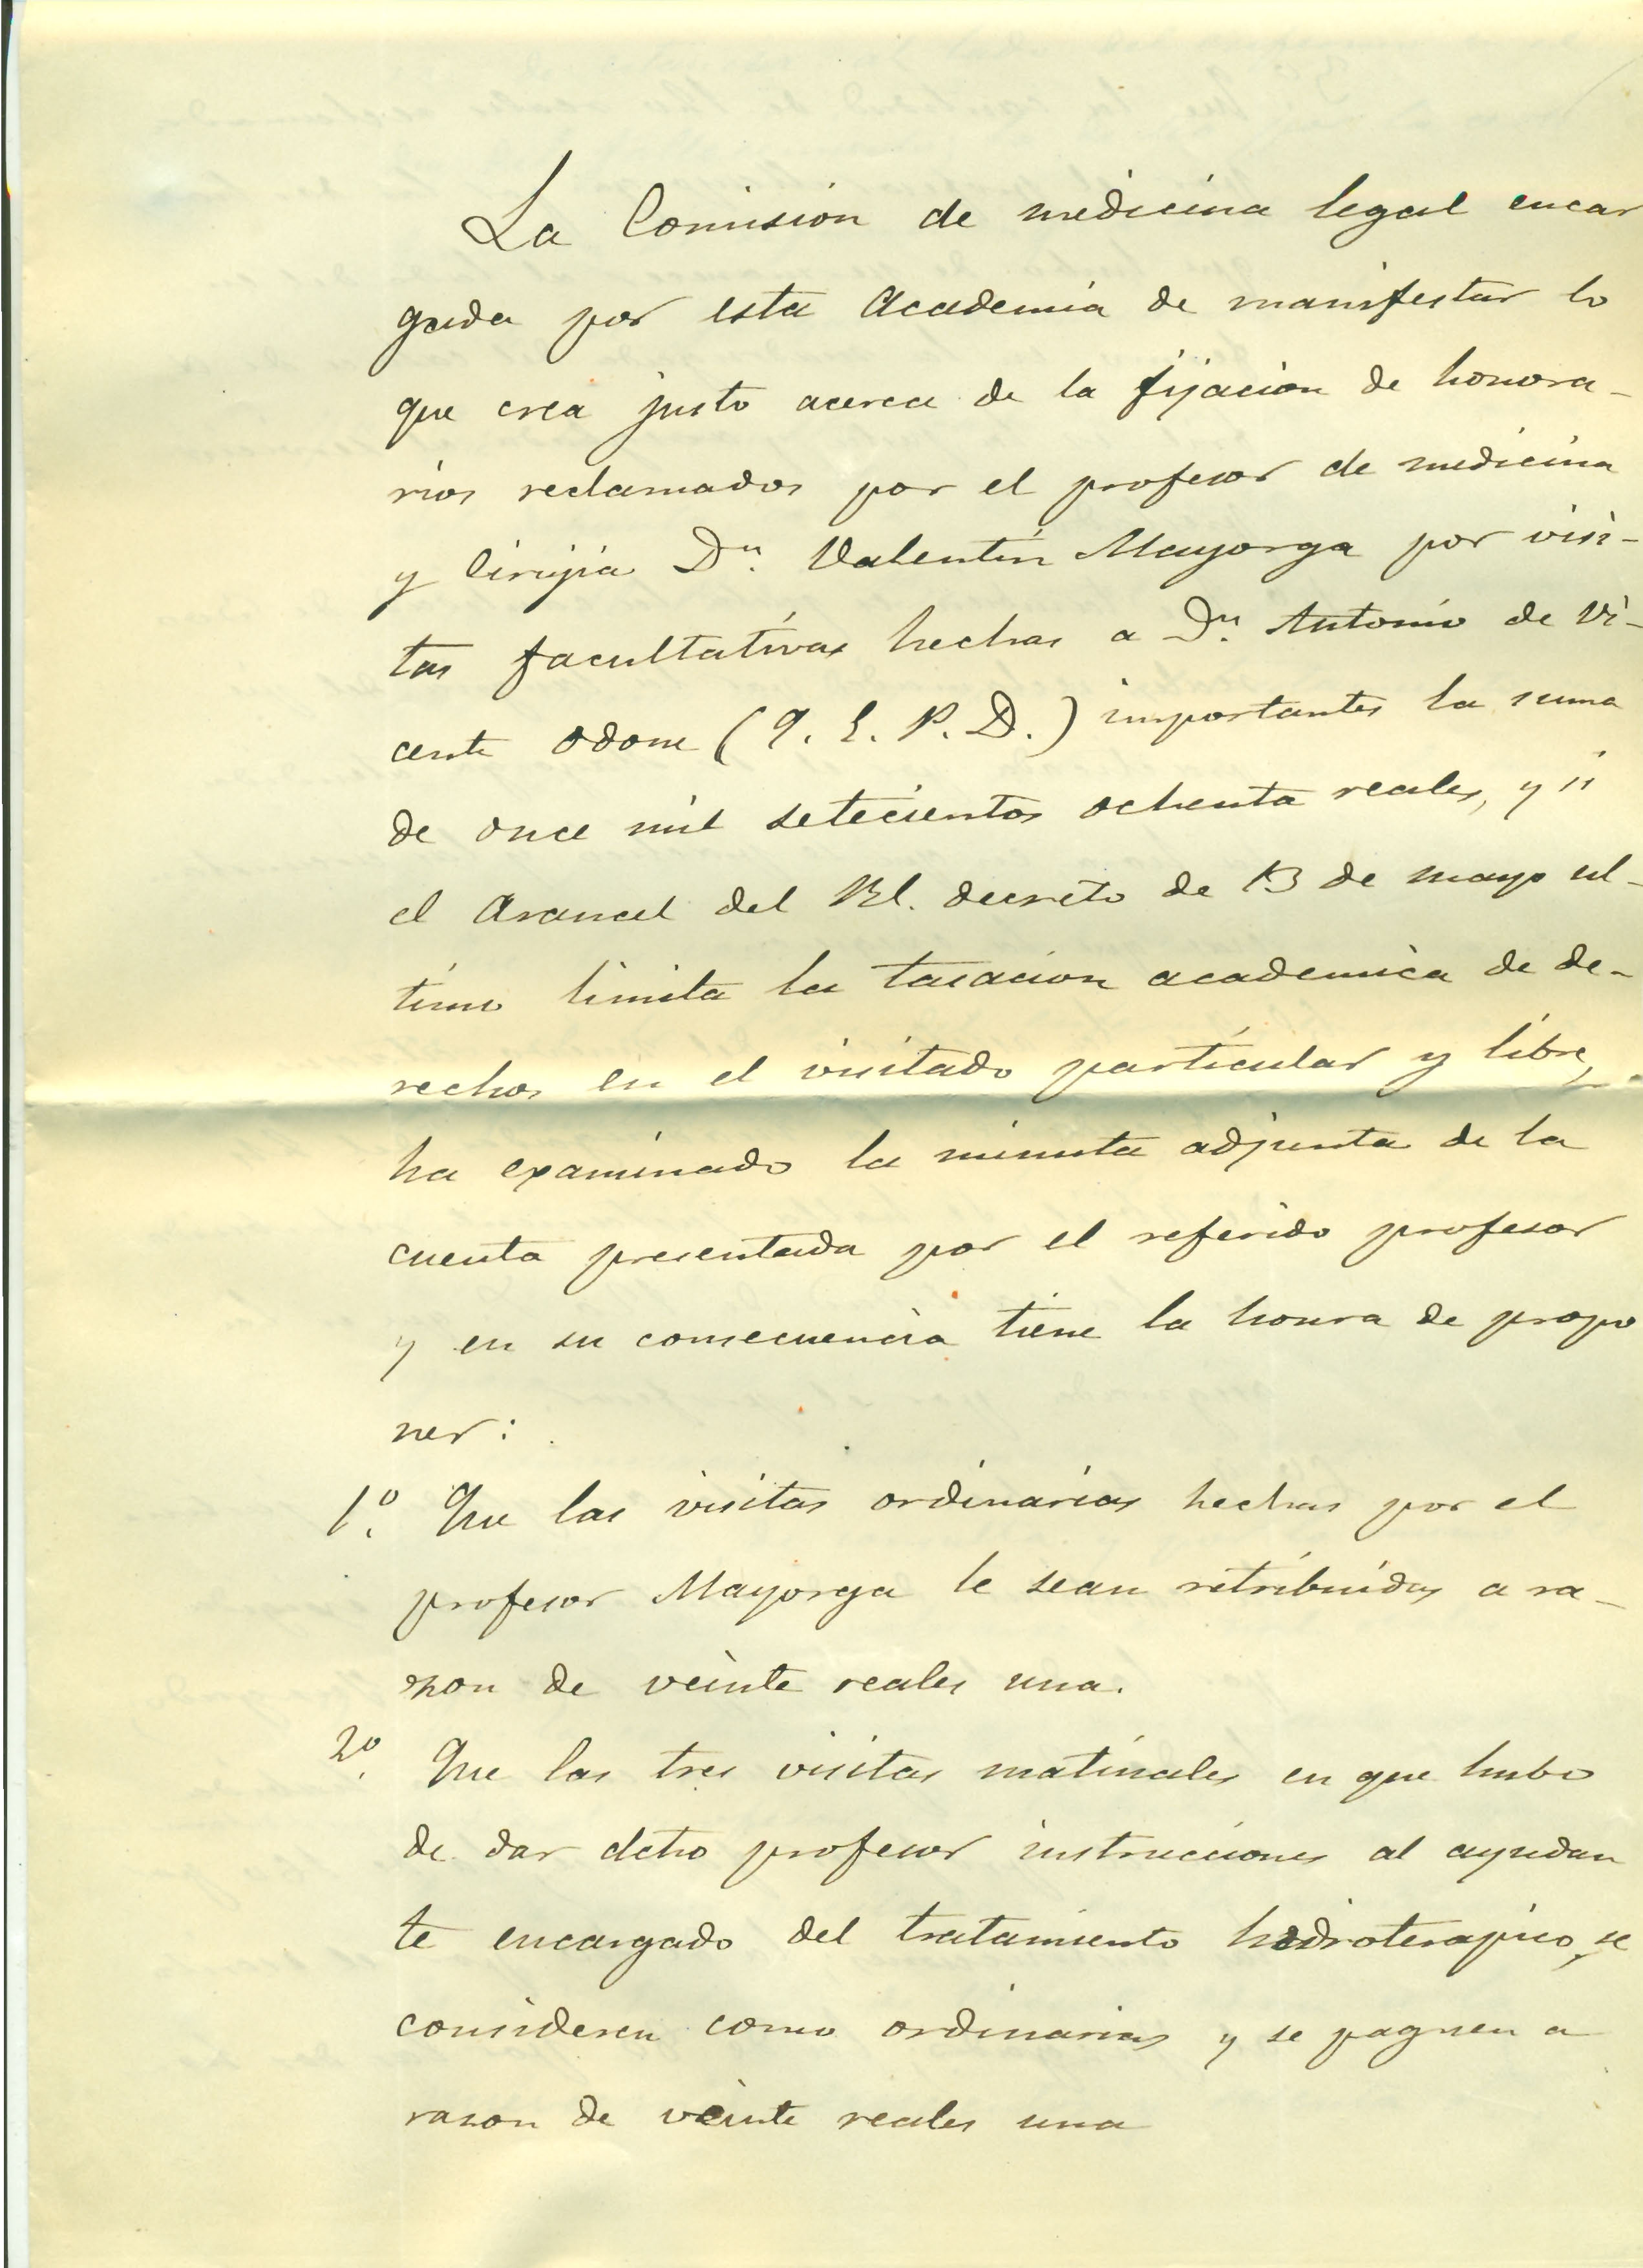 La Comision de medicina legal encar
gada por esta Academia de manifestar lo
que crea justo acerca de la fijacion de honora-
rios reclamados por el profesor de medicina
y Cirujia Dn. Valentin Mayorga por visi-
tas facultativas hechas a Dn. Antonio de Vi-
cente Odone (Q. E. P. D.) importantes la suma
de once mil setecientos ochenta reales, y si
el Arancel del Rl. decreto de 13 de mayo ul-
timo limita la tasacion academica de de-
rechos en el visitado particular y libre,
ha examinado la minuta adjunta de la
cuenta presentada por el referido profesor
y en su consecuencia tiene la honra de propo
ner:
1º. Que las visitas ordinarias hechas por el
profesor Mayorga le sean retribuidas a ra-
zon de veinte reales una.
2º. Que las tres visitas matinales en que hubo
de dar dcho profesor instrucciones al ayudan
te encargado del tratamiento hidroterapico, se
consideren como ordinarias y se paguen a
razon de veinte reales una